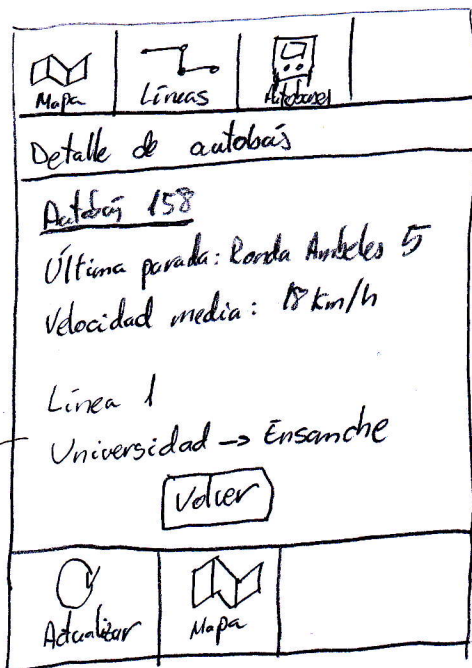 Mapa
Líneas
Autobuses
Detalle de autobús
Autobús 158
Última parada: Ronda Ambeles 5
Velocidad media: 18 km/h
Línea 1
Universidad -> Ensanche
Volver
Actualizar
Mapa